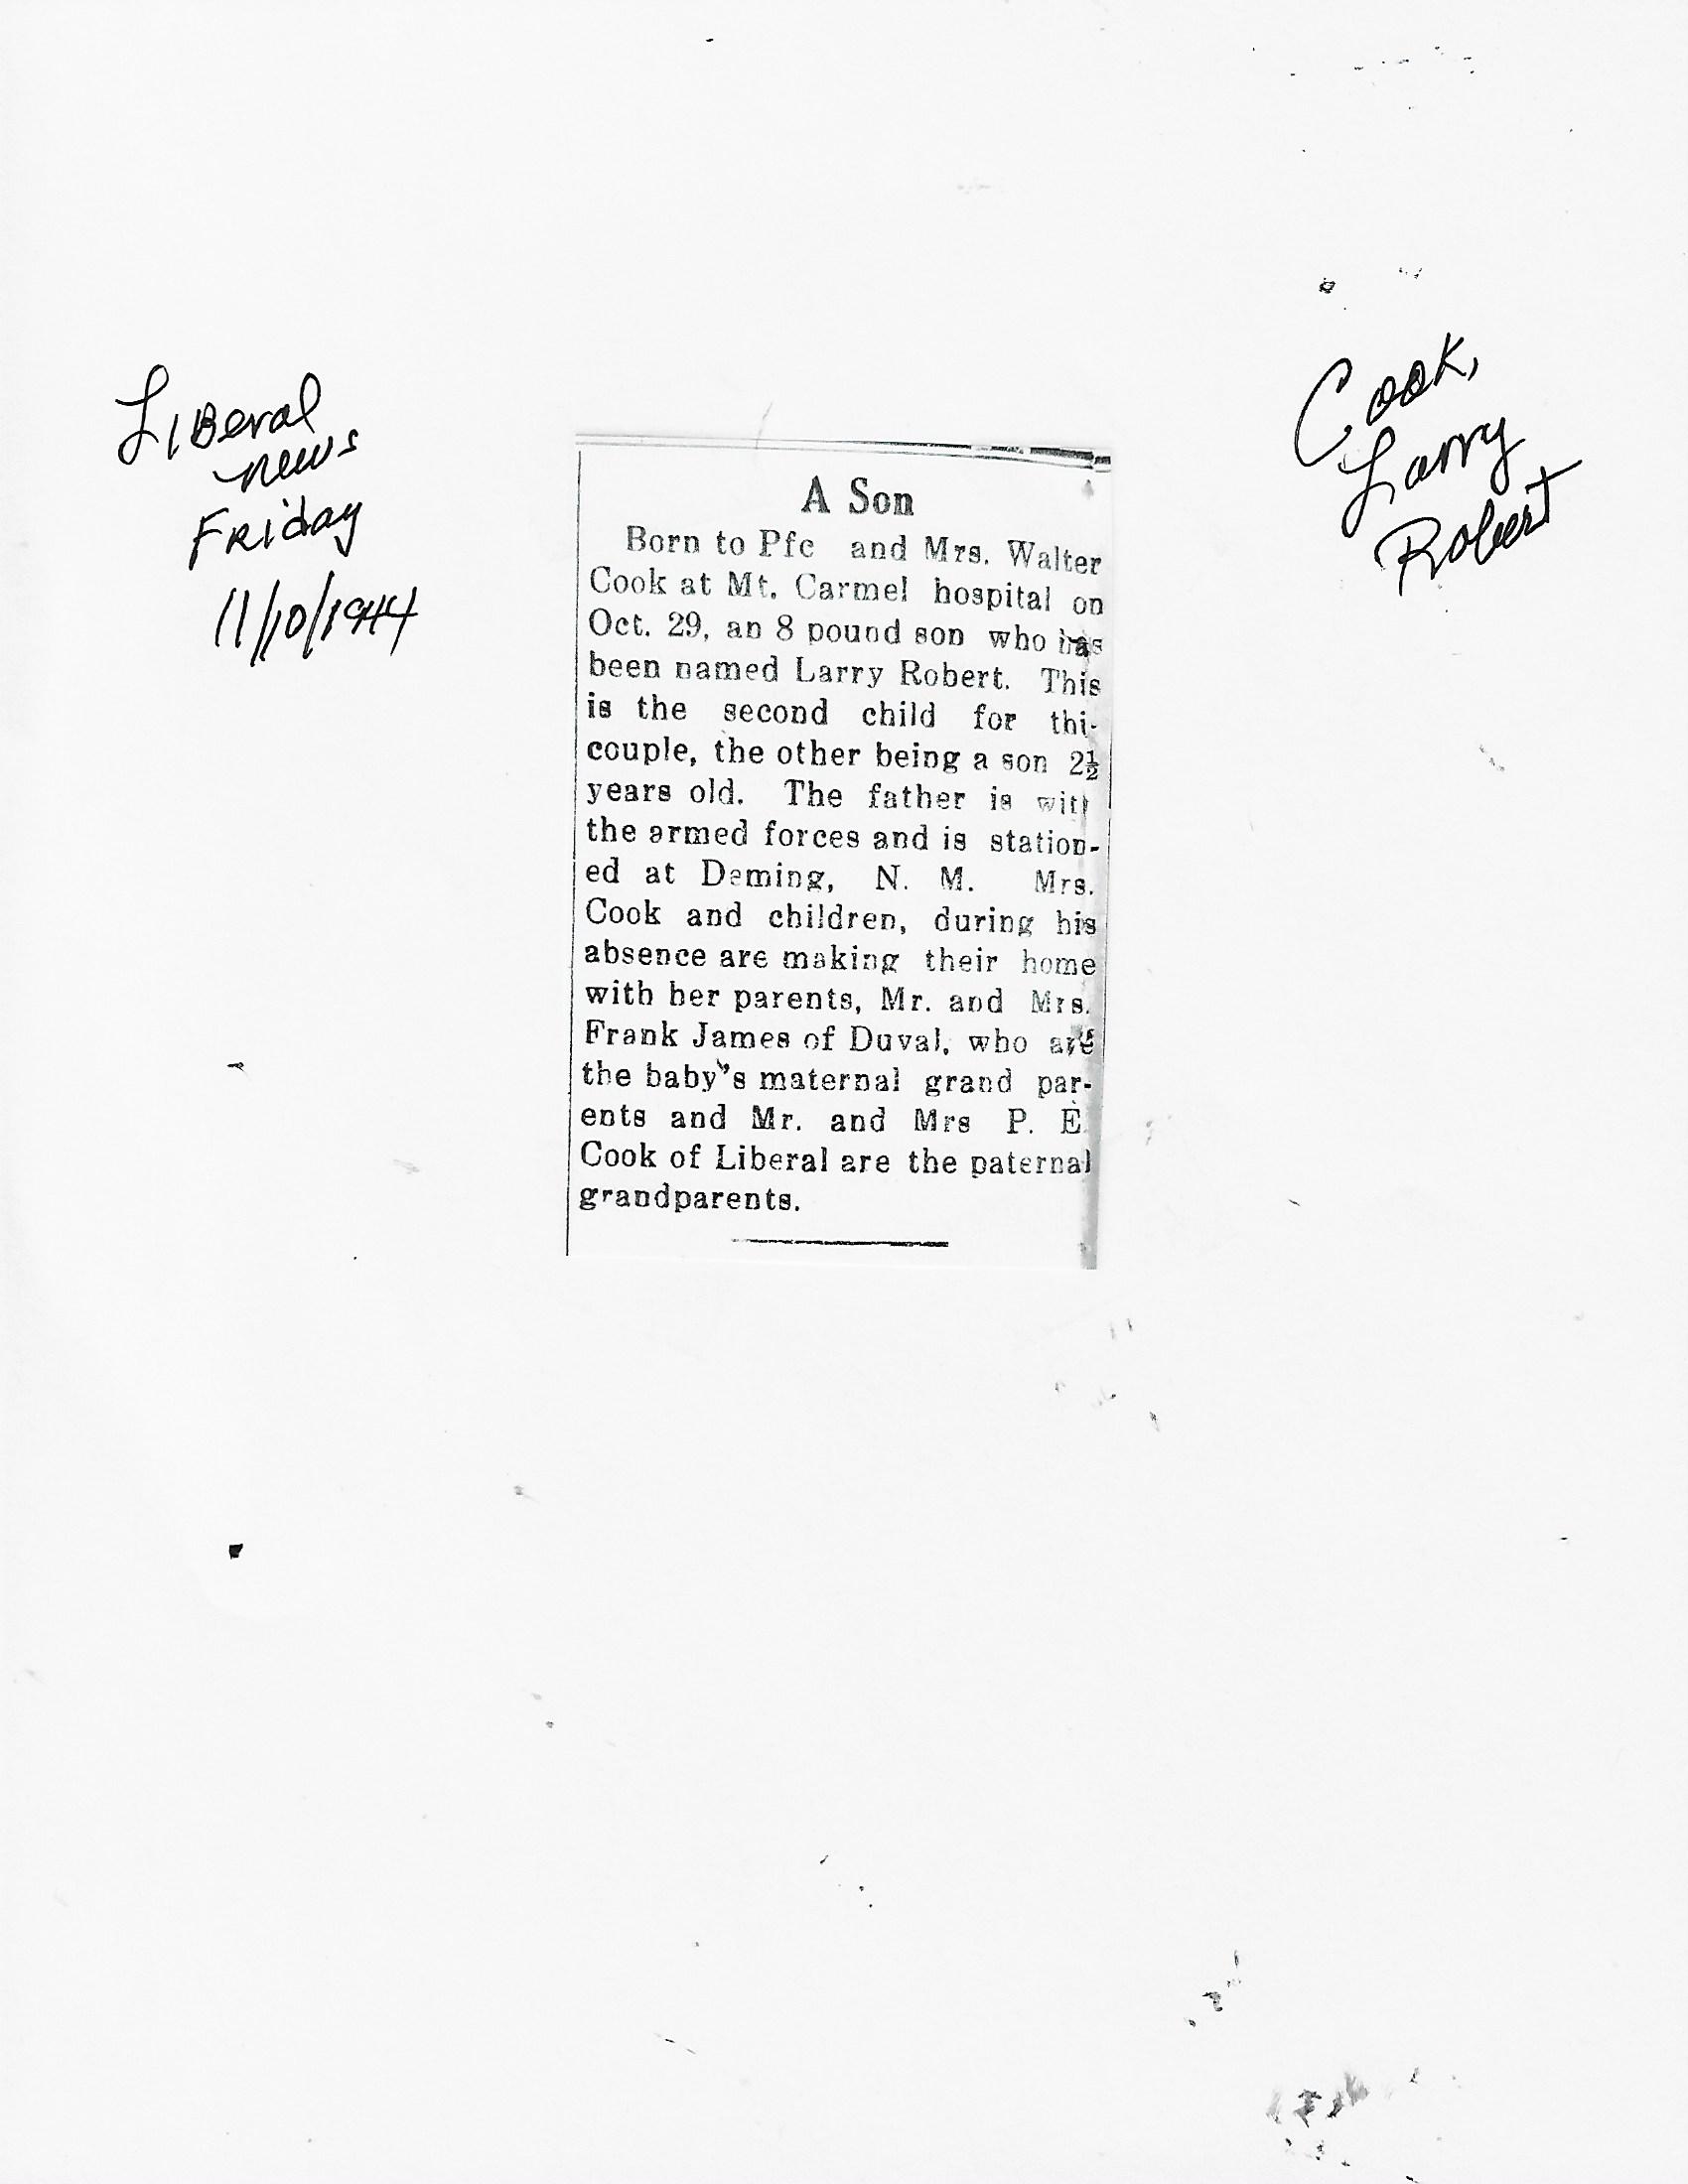 Liberal
news
Friday
11/10/1944
Cook,
Larry
Robert
A Son
Born to Pfc and Mrs. Walter
Cook at Mt. Carmel hospital on
Oct. 29, an 8 pound son who has
been named Larry Robert. This
is the second child for thi-
couple, the other being a son 2½
years old. The father is with
the armed forces and is station-
ed at Deming, N. M. Mrs.
Cook and children, during his
absence are making their home
with her parents, Mr. and Mrs.
Frank James of Duval, who are
the baby's maternal grand par-
ents and Mr. and Mrs P. E.
Cook of Liberal are the paternal
grandparents.